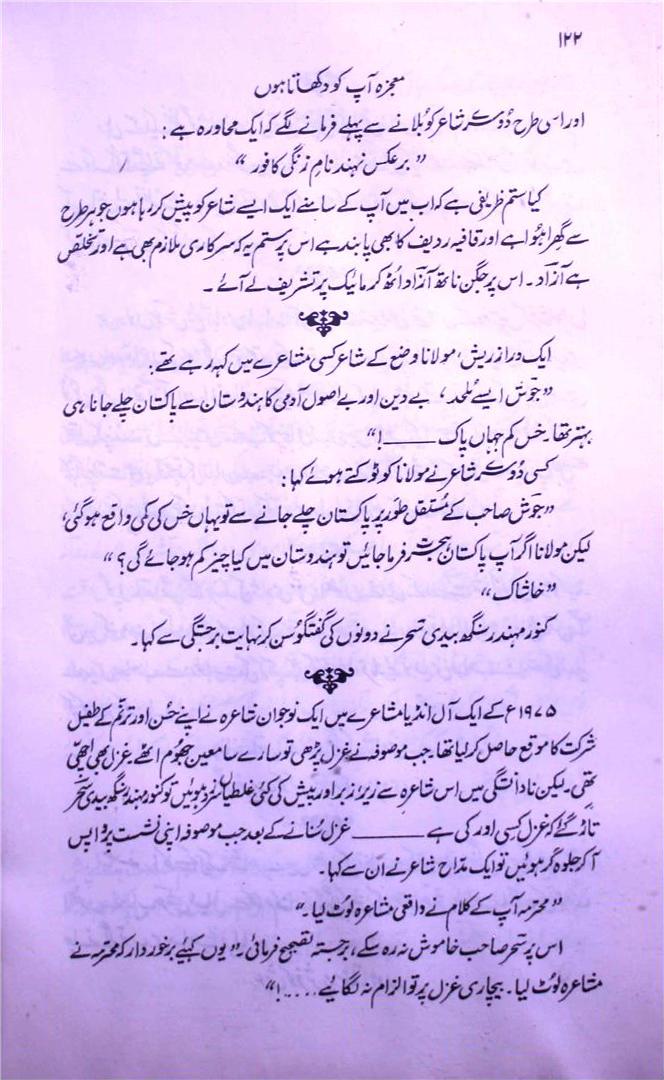 ۱۲۲
معجزہ آپ کو دکھاتا ہوں
اور اسی طرح دُوسرے شاعر کو بلانے سے پہلے فرمانے لگے کہ ایک محاورہ ہے :
” برعکس نہند نامِ زنگی کافور “
کیا ستم ظریفی ہے کہ اب میں آپ کے سامنے ایک ایسے شاعر کو پیش کر رہا ہوں جو ہر طرح
سے گھرا ہُوا ہے اور قافیہ ردیف کا بھی پابند ہے اس پر ستم یہ کہ سرکاری ملازم بھی ہے اور تخلص
ہے آزاد ۔ اس پر جگن ناتھ آزاد اٹھ کر مائیک پر تشریف لے آئے ۔
ایک دراز ریش ، مولانا وضع کے شاعر کسی مشاعرے میں کہہ رہے تھے :
” جوش ایسے مُلحد ، بے دین اور بے اصول آدمی کا ہندوستان سے پاکستان چلے جانا ہی
بہتر تھا ۔ خس کم جہاں پاک ــــــ ! “
کسی دُوسرے شاعر نے مولانا کو ٹوکتے ہوئے کہا :
” جوش صاحب کے مُستقل طور پر پاکستان چلے جانے سے تو یہاں خس کی کمی واقع ہو گئی ،
لیکن مولانا اگر آپ پاکستان ہجرت فرما جائیں تو ہندوستان میں کیا چیز کم ہو جائے گی ؟ “
” خاشاک “
کنور مہندر سنگھ بیدی سحر نے دونوں کی گفتگو سُن کر نہایت برجستگی سے کہا ۔
۱۹۷۵ء کے ایک آل انڈیا مشاعرے میں ایک نوجوان شاعرہ نے اپنے حُسن اور ترنّم کے طفیل
شرکت کا موقع حاصل کر لیا تھا ۔ جب موصوفہ نے غزل پڑھی تو سارے سامعین جھُوم اٹھے ۔ غزل بھی اچھی
تھی ۔ لیکن نادانستگی میں اس شاعرہ سے زیر ، زبر اور پیش کی کئی غلطیاں سرزد ہوئیں تو کنور مہندر سنگھ بیدی سحر
تاڑ گئے کہ غزل کسی اور کی ہے ــــــ غزل سُنانے کے بعد جب موصوفہ اپنی نشست پر واپس
آ کر جلوہ گر ہوئیں تو ایک مدّاح شاعر نے ان سے کہا ۔
” محترمہ آپ کے کلام نے واقعی مشاعرہ لوٹ لیا ۔ “
اس پر سحر صاحب خاموش نہ رہ سکے ، برجستہ تصحیح فرمائی ۔ ” یوں کہیئے برخوردار کہ محترمہ نے
مشاعرہ لوٹ لیا ۔ بیچاری غزل پر تو الزام نہ لگائیے ..... ! “